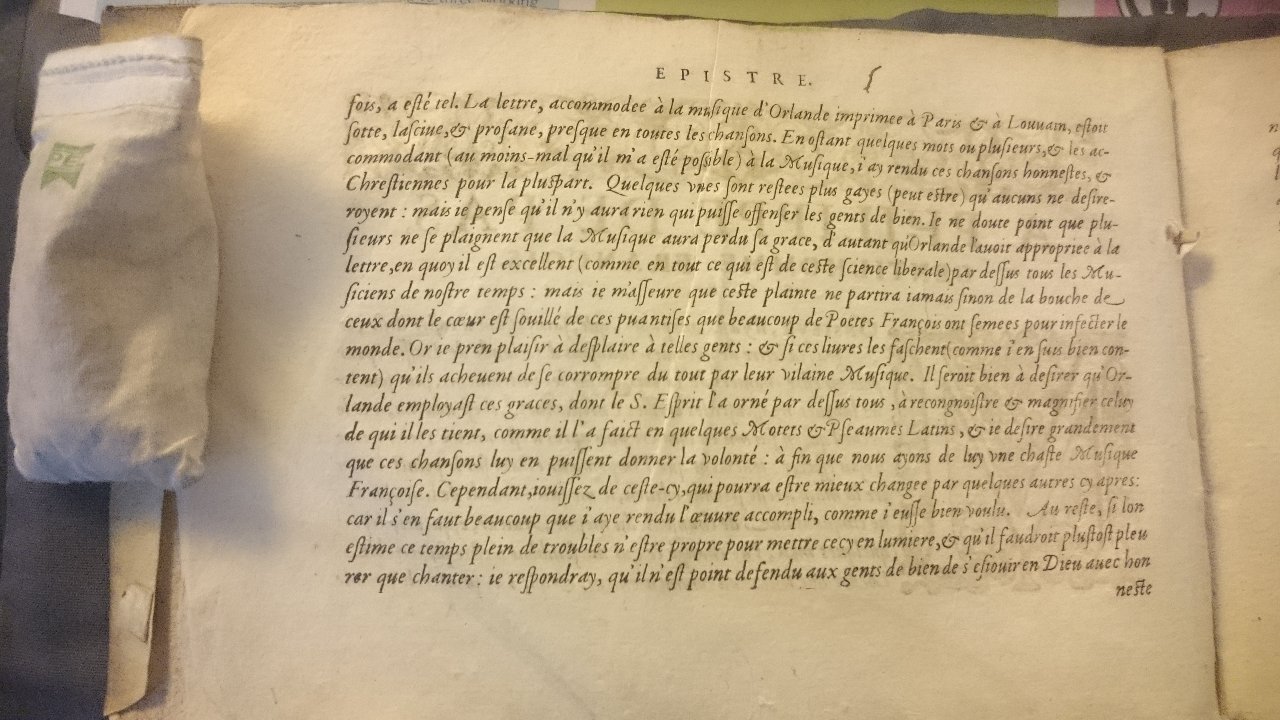 EPISTRE.
fois, a esté tel. La lettre, accommodee à la musique d'Orlande imprimee à Paris & à Louuain, estoit
sotte, lasciue,& profane, presque en toutes les chansons. En ostant quelques mots ou plusieurs,& les ac-
commodant (au moins-mal qu'il m'a esté possible) à la Musique, i'ay rendu ces chansons honnestes, &
Chrestiennes pour la pluspart. Quelques vnes sont restees plus gayes (peut estre) qu'aucuns ne desire-
royent : mais ie pense qu'il n'y aura rien qui puisse offenser les gents de bien. Ie ne doute point que plu-
sieurs ne se plaignent que la Musique aura perdu sa grace, d'autant qu'Orlande l'auoit appropriee à la
lettre,en quoy il est excellent (comme en tout ce qui est de ceste science liberale)par dessus tous les Mu-
siciens de nostre temps : mais ie m'asseure que ceste plainte ne partira iamais sinon de la bouche de
ceux dont le cœur est souillé de ces puantises que beaucoup de Poetes François ont semees pour infecter le
monde. Or ie pren plaisir à desplaire à telles gents : & si ces liures les faschent(comme i'en suis bien con-
tent) qu'ils acheuent de se corrompre du tout par leur vilaine Musique. Il seroit bien à desirer qu'Or-
lande employast ces graces, dont le S. Esprit l'a orné par dessus tous , à recongnoistre & magnifier celuy
de qui il les tient, comme il l'a faict en quelques Motets & Pseaumes Latins , & ie desire grandement
que ces chansons luy en puissent donner la volonté : à fin que nous ayons de luy vne chaste Musique
Françoise. Cependant,iouissez de ceste-cy,qui pourra estre mieux changee par quelques autres cy apres:
car il s'en faut beaucoup que i'aye rendu l'œuure accompli, comme i'eusse bien voulu. Au reste, si lon
estime ce temps plein de troubles n'estre propre pour mettre cecy en lumiere,& qu'il faudroit plustost pleu
rer que chanter : ie respondray, qu'il n'est point defendu aux gents de bien de s'esiouir en Dieu auec hon
neste